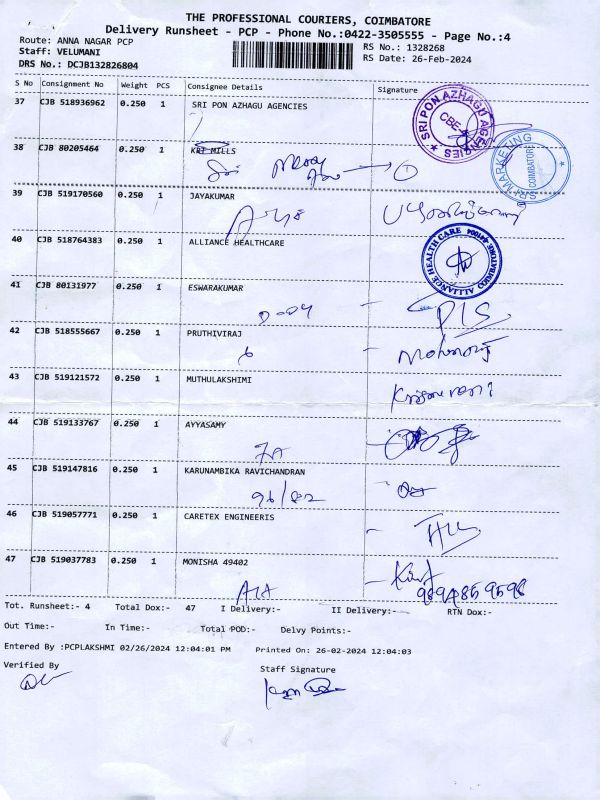 THE PROFESSIONAL COURIERS, COIMBATORE
Delivery Runsheet - PCP - Phone No.:0422-3505555 - Page No.:4
Route: ANNA NAGAR PCP
RS No.: 1328268
Staff: VELUMANI
RS Date: 26-Feb-2024
DRS No.: DCJB132826804
S No Consignment No Weight PCS Consignee Details Signature
37 CJB 518936962 0.250 1 SRI PON AZHAGU AGENCIES
SRI PON AZHAGU AGENCIES
CBE
38 CJB 80205464 0.250 1 KRI MILLS
SRI MARKETING
COIMBATORE
39 CJB 519170560 0.250 1 JAYAKUMAR
40 CJB 518764383 0.250 1 ALLIANCE HEALTHCARE
ALLIANCE HEALTH CARE
COIMBATORE
41 CJB 80131977 0.250 1 ESWARAKUMAR
42 CJB 518555667 0.250 1 PRUTHIVIRAJ
6
43 CJB 519121572 0.250 1 MUTHULAKSHIMI
44 CJB 519133767 0.250 1 AYYASAMY
7A
45 CJB 519147816 0.250 1 KARUNAMBIKA RAVICHANDRAN
46 CJB 519057771 0.250 1 CARETEX ENGINEERIS
47 CJB 519037783 0.250 1 MONISHA 49402
Tot. Runsheet:- 4 Total Dox:- 47 I Delivery:- II Delivery:- RTN Dox:-
Out Time:- In Time:- Total POD:- Delvy Points:-
Entered By :PCPLAKSHMI 02/26/2024 12:04:01 PM Printed On: 26-02-2024 12:04:03
Verified By
Staff Signature